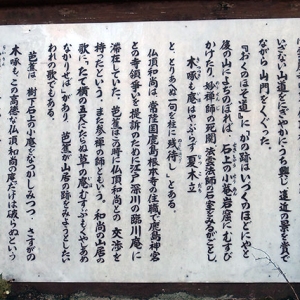 いざない、山道とさいどみにうち興じ、道辺の景を賞で
ながら 山門をくぐった。
『おくのほそ道』に「かの跡はいづくのほどにやと
後の山によぢのぼれば、石上の小菴岩窟にむすび
かけたり。妙禅師の死関、法雲法師の石室をみるがごとし。
木啄も庵はやぶらず夏木立
と、とりあへぬ一句を柱に残侍し」とある。
仏頂和尚は、常陸国鹿島根本寺の住職で鹿島神宮
との寺領争いを提訴のために江戸深川の臨川庵に
滞在していた。芭蕉はこの時に仏頂和尚との交渉を
持ったという。また参禅の師という。和尚の山居の
歌に、「たて横の五尺にたらぬ草の庵むすぶもくやしあめ
なかりせば」があり 芭蕉が山居の跡をみようとした
われの歌でもある。
芭蕉は、樹下石上の小庵をなつかしみつつ、さすがの
木啄もこの高徳な仏頂和尚の庵だけは破らぬという